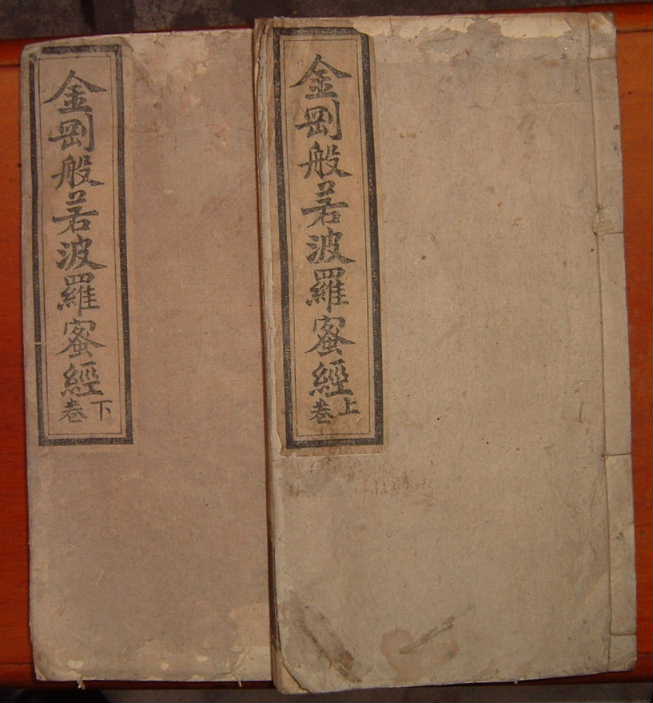 金剛般若波羅蜜經
上卷
金剛般若波羅蜜經
下卷